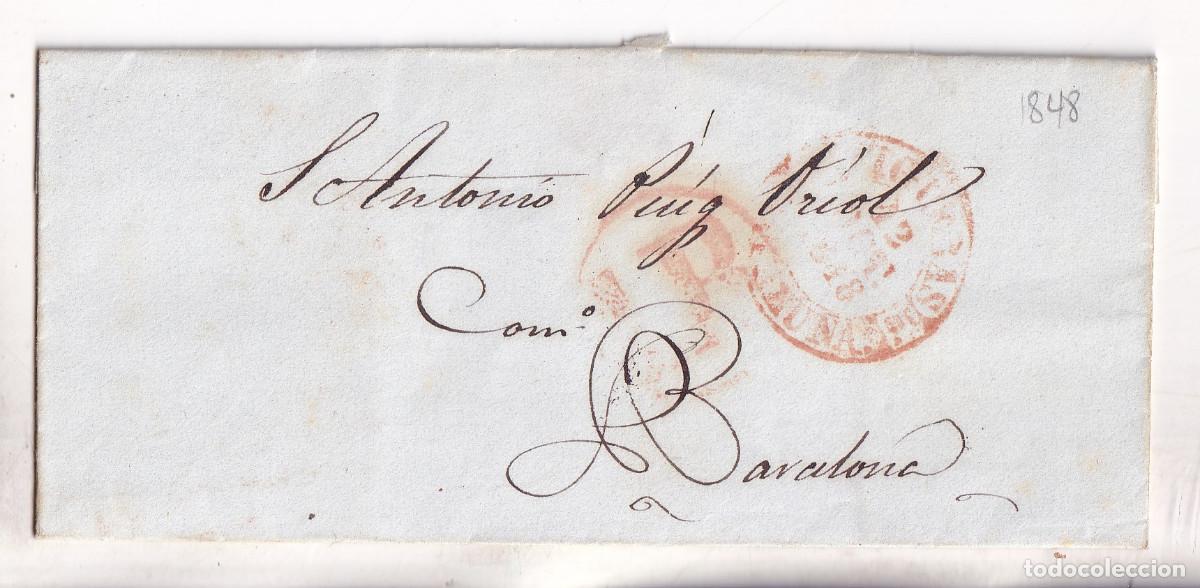 1848
S Antonio Púig Oriol
Com.º
Barcelona
todocoleccion